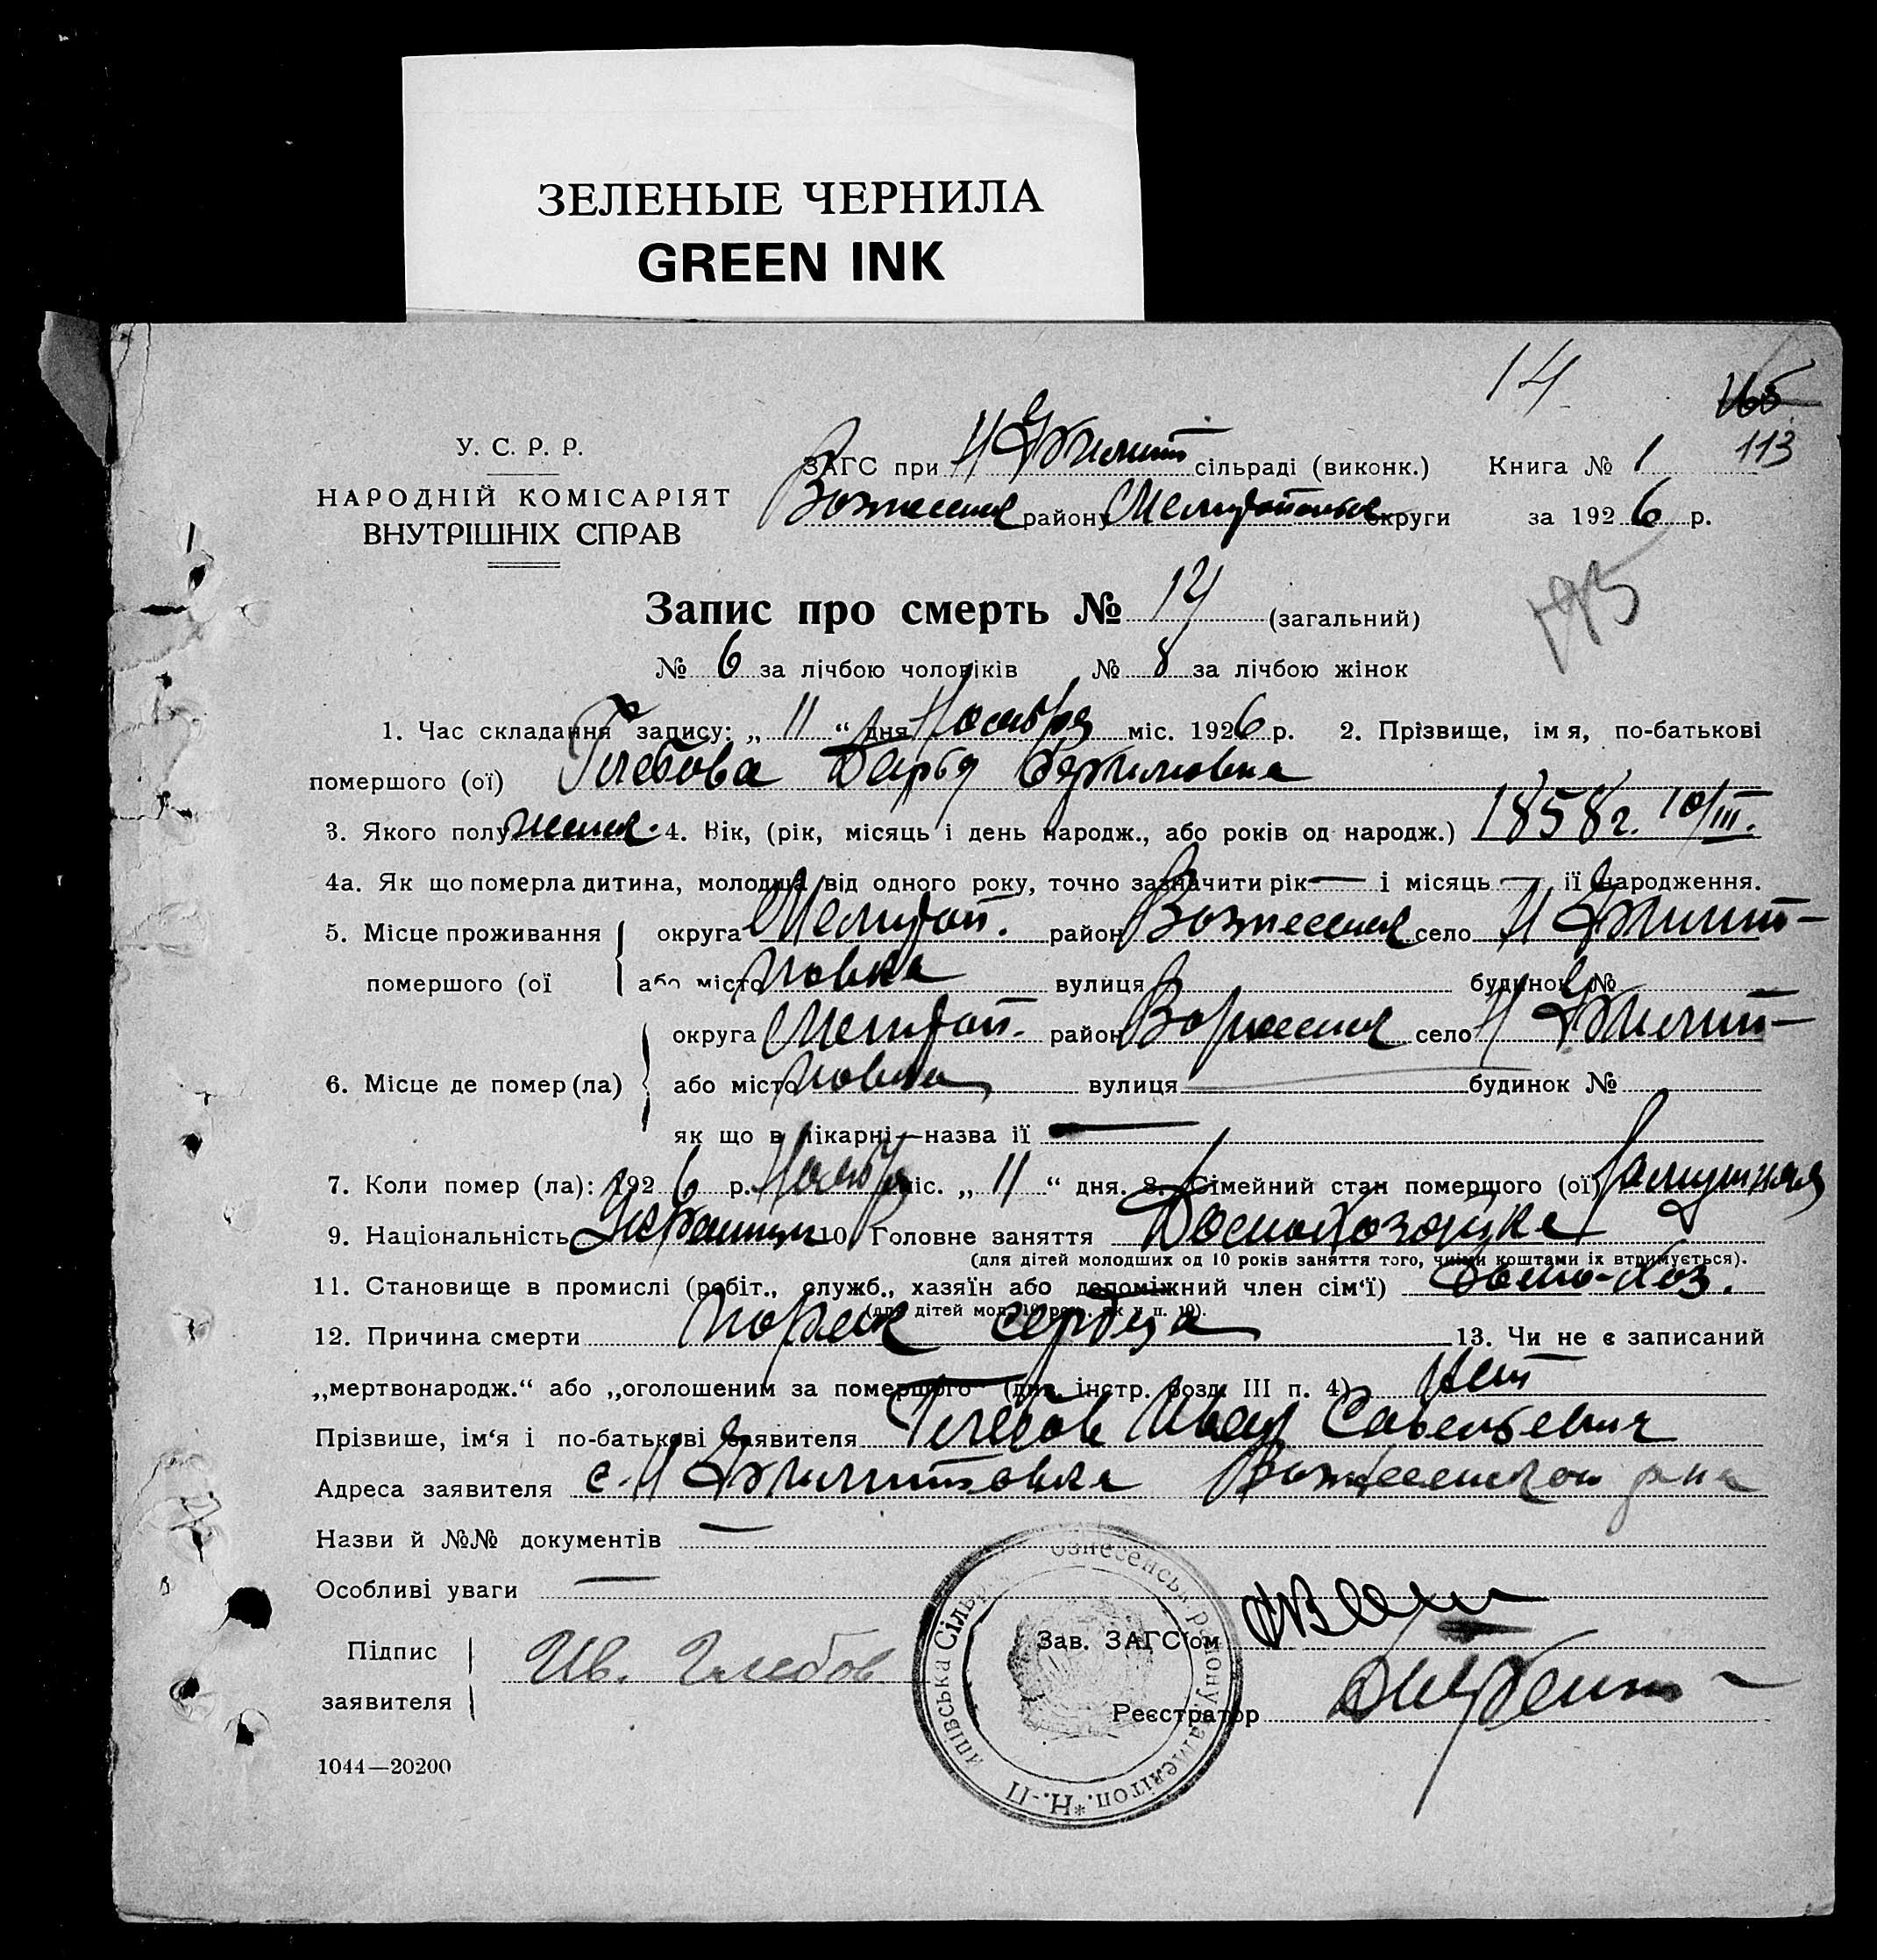 ЗЕЛЕНЫЕ ЧЕРНИЛА
GREEN INK
14
113
У. С. Р. Р.
НАРОДНІЙ КОМІСАРІЯТ
ВНУТРІШНІХ СПРАВ
ЗАГС при Н сільраді (виконк.) Книга № 1
Вознесенск району Мелитопольск округи за 1926 р.
Запис про смерть № 14 (загальний)
№ 6 за лічбою чоловіків № 8 за лічбою жінок
1. Час складання запису: „ 11 “ дня Ноября міс. 1926 р. 2. Прізвище, імя, по-батькові
помершого (ої) Глебова Дарья
3. Якого полу женск. 4. Вік, (рік, місяць і день народж., або років од народж.) 1858 г. 10/III.
4а. Як що померла дитина, молодша від одного року, точно зазначити рік — і місяць — її народження.
5. Місце проживання округа Мелитоп. район Вознесенск село Н
помершого (ої або місто повка вулиця будинок №
округа Мелитоп. район Вознесенск село Н
6. Місце де помер (ла) або місто повка вулиця будинок №
як що в лікарні—назва її —
7. Коли помер (ла): 1926 р. Ноября міс. „ 11 “ дня. 8. Сімейний стан помершого (ої)
9. Національність 10. Головне заняття Домохозяйка
(для дітей молодших од 10 років заняття того, чиїми коштами їх втримується).
11. Становище в промислі (робіт., служб., хазяїн або допоміжний член сім‘ї) Домо-хоз.
(для дітей мол. 10 рок. як у п. 10).
12. Причина смерти порок сердца 13. Чи не є записаний
„мертвонародж.“ або „оголошеним за помершого“ (див. інстр. розд. III п. 4) Нет
Прізвише, ім‘я і по-батькові заявителя Глебов Иван Савельевич
Адреса заявителя с. Н Вознесенского р-на
Назви й №№ документів —
Особливі уваги —
Підпис
заявителя
Ив. Глебов.
Зав. ЗАГС‘ом
Реєстратор
ипівська Сільр ознесенськ району, на Меліtоп. * Н.-П
1044—20200